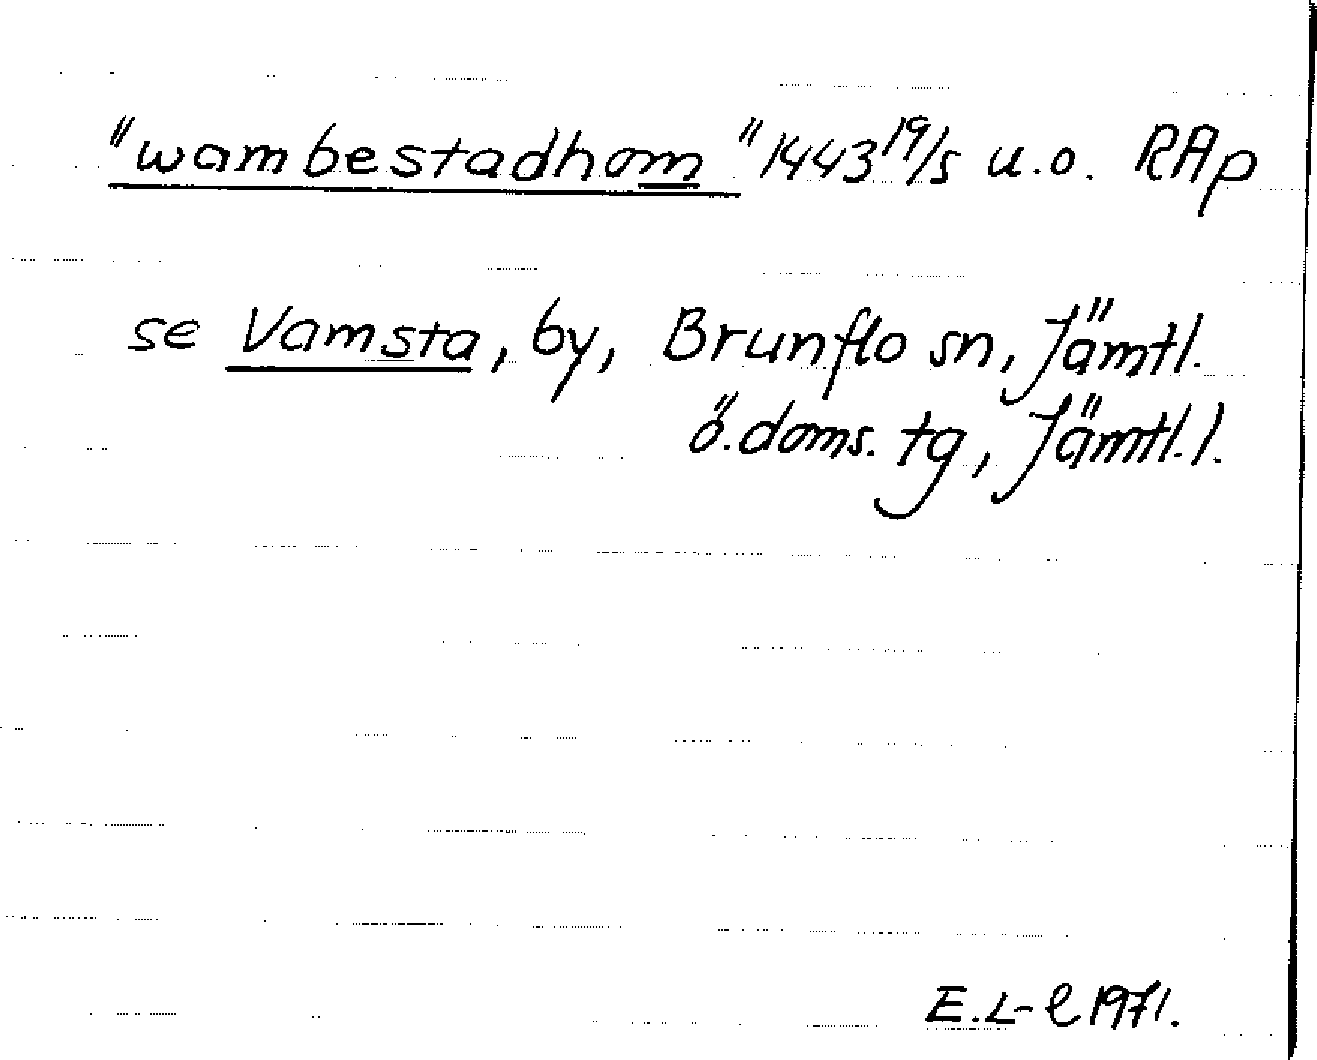 "wambestadhom" 1443 19/5 u.o. RAp
se Vamsta, by, Brunflo sn, Jämtl.
ö. doms. tg, Jämtl. l.
E. L-l 1971.